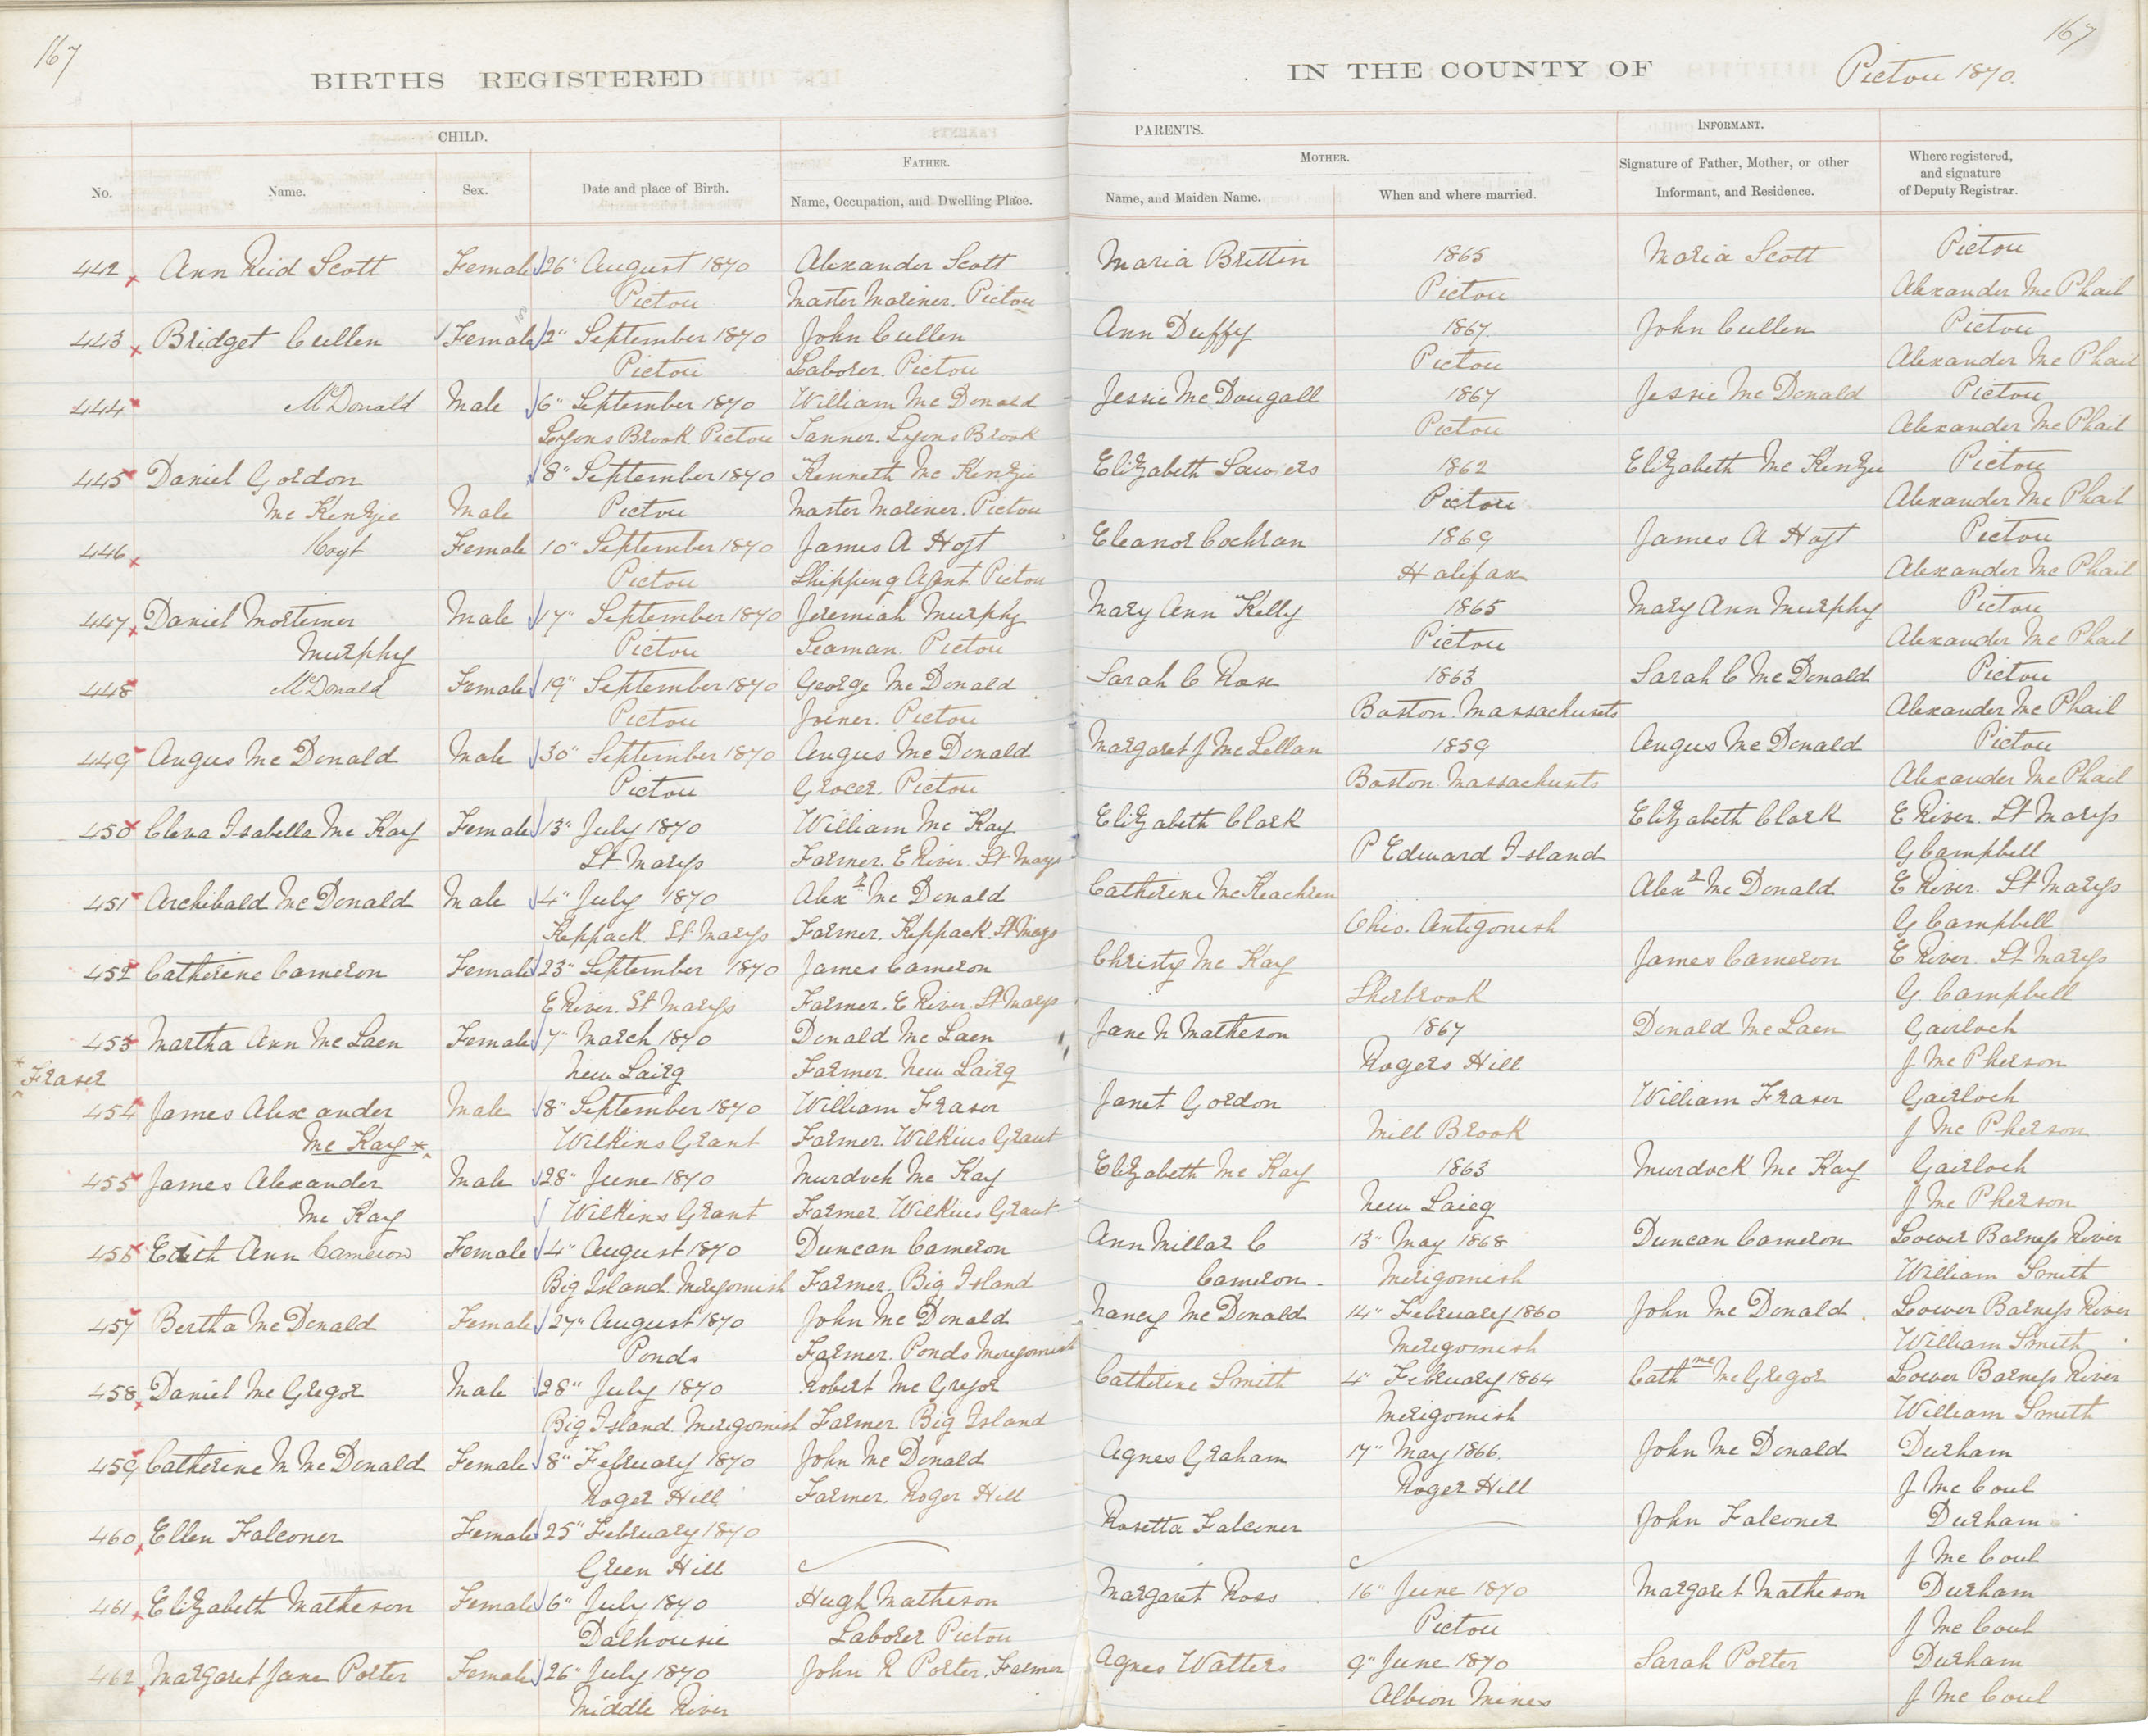 167
167
BIRTHS REGISTERED
IN THE COUNTY OF Pictou 1870.
CHILD.
PARENTS.
INFORMANT.
No.
Name.
Sex.
Date and place of Birth.
FATHER.
Name, Occupation, and Dwelling Place.
MOTHER.
Name, and Maiden Name.
When and where married.
Signature of Father, Mother, or other
Informant, and Residence.
Where registered,
and signature
of Deputy Registrar.
442 Ann Reid Scott Female 26" August 1870 Alexander Scott Maria Brittin 1865 Maria Scott Pictou
Pictou Master Mariner. Pictou Pictou Alexander Mc Phail
443 Bridget Cullen Female 2" September 1870 John Cullen Ann Duffy 1867. John Cullen Pictou
Pictou Laborer. Pictou Pictou Alexander Mc Phail
444 McDonald Male 6" September 1870 William Mc Donald Jessie Mc Dougall 1867 Jessie Mc Donald Pictou
Lyons Brook Pictou Tanner. Lyons Brook Pictou Alexander Mc Phail
445 Daniel Gordon 8" September 1870 Kenneth Mc Kenzie Elizabeth Sawers 1862 Elizabeth Mc Kenzie Pictou
Mc Kenzie Male Pictou Master Mariner. Pictou Pictou Alexander Mc Phail
446 Hoyt Female 10" September 1870 James A Hoyt Eleanor Cochran 1869 James A Hoyt Pictou
Pictou Shipping Agent. Pictou Halifax Alexander Mc Phail
447 Daniel Mortimer Male 17" September 1870 Jeremiah Murphy Mary Ann Kelly 1865 Mary Ann Murphy Pictou
Murphy Pictou Seaman. Pictou Pictou Alexander Mc Phail
448 McDonald Female 19" September 1870 George Mc Donald Sarah C Ross 1863 Sarah C Mc Donald Pictou
Pictou Joiner. Pictou Boston. Massachusets Alexander Mc Phail
449 Angus Mc Donald Male 30" September 1870 Angus Mc Donald Margaret J Mc Lellan 1859 Angus Mc Donald Pictou
Pictou Grocer. Pictou Boston Massachusets Alexander Mc Phail
450 Cleva Isabella Mc Kay Female 13" July 1870 William Mc Kay Elizabeth Clark Elizabeth Clark E River. St Marys
St. Marys Farmer. E River. St Marys P Edward Island G Campbell
451 Archibald Mc Donald Male 4" July 1870 Alexr Mc Donald Catherine McKeachren Alexr Mc Donald E River. St Marys
Keppack. St Marys Farmer. Keppack. St Marys Ohio. Antigonish G Campbell
452 Catherine Cameron Female 23" September 1870 James Cameron Christy Mc Kay James Cameron E River. St Marys
E River. St Marys Farmer. E River. St Marys Sherbrook G. Campbell
453 Martha Ann Mc Laen Female 7" March 1870 Donald Mc Laen Jane N Matheson 1867 Donald Mc Laen Gairloch
New Lairg Farmer. New Lairg Rogers Hill J Mc Pherson
* Fraser
454 James Alexander Male 8" September 1870 William Fraser Janet Gordon William Fraser Gairloch
Mc Kay * Wilkins Grant Farmer. Wilkins Grant Mill Brook J Mc Pherson
455 James Alexander Male 28" June 1870 Murdoch Mc Kay Elizabeth Mc Kay 1863 Murdock Mc Kay Gairloch
Mc Kay Wilkins Grant Farmer. Wilkins Grant New Lairg J Mc Pherson
456 Edith Ann Cameron Female 4" August 1870 Duncan Cameron Ann Millar C 13" May 1868 Duncan Cameron Lower Barneys River
Big Island. Merigomish Farmer. Big Island Cameron Merigomish William Smith
457 Bertha Mc Donald Female 27" August 1870 John Mc Donald Nancy Mc Donald 14" February 1860 John Mc Donald Lower Barneys River
Ponds Farmer. Ponds Merigomish Merigomish William Smith
458 Daniel Mc Gregor Male 28" July 1870 Robert Mc Gregor Catherine Smith 4" February 1864 Cathne McGregor Lower Barneys River
Big Island Merigomish Farmer. Big Island Merigomish William Smith
459 Catherine N Mc Donald Female 8" February 1870 John Mc Donald Agnes Graham 17" May 1866. John Mc Donald Durham
Roger Hill Farmer. Roger Hill Roger Hill J Mc Coul
460 Ellen Falconer Female 25" February 1870 Rosetta Falconer John Falconer Durham
Green Hill J Mc Coul
461 Elizabeth Matheson Female 6" July 1870 Hugh Matheson Margaret Ross 16" June 1870 Margaret Matheson Durham
Dalhousie Laborer Pictou Pictou J Mc Coul
462 Margaret Jane Porter Female 26" July 1870 John R Porter. Farmer Agnes Watters 9" June 1870 Sarah Porter Durham
Middle River Albion Mines J Mc Coul